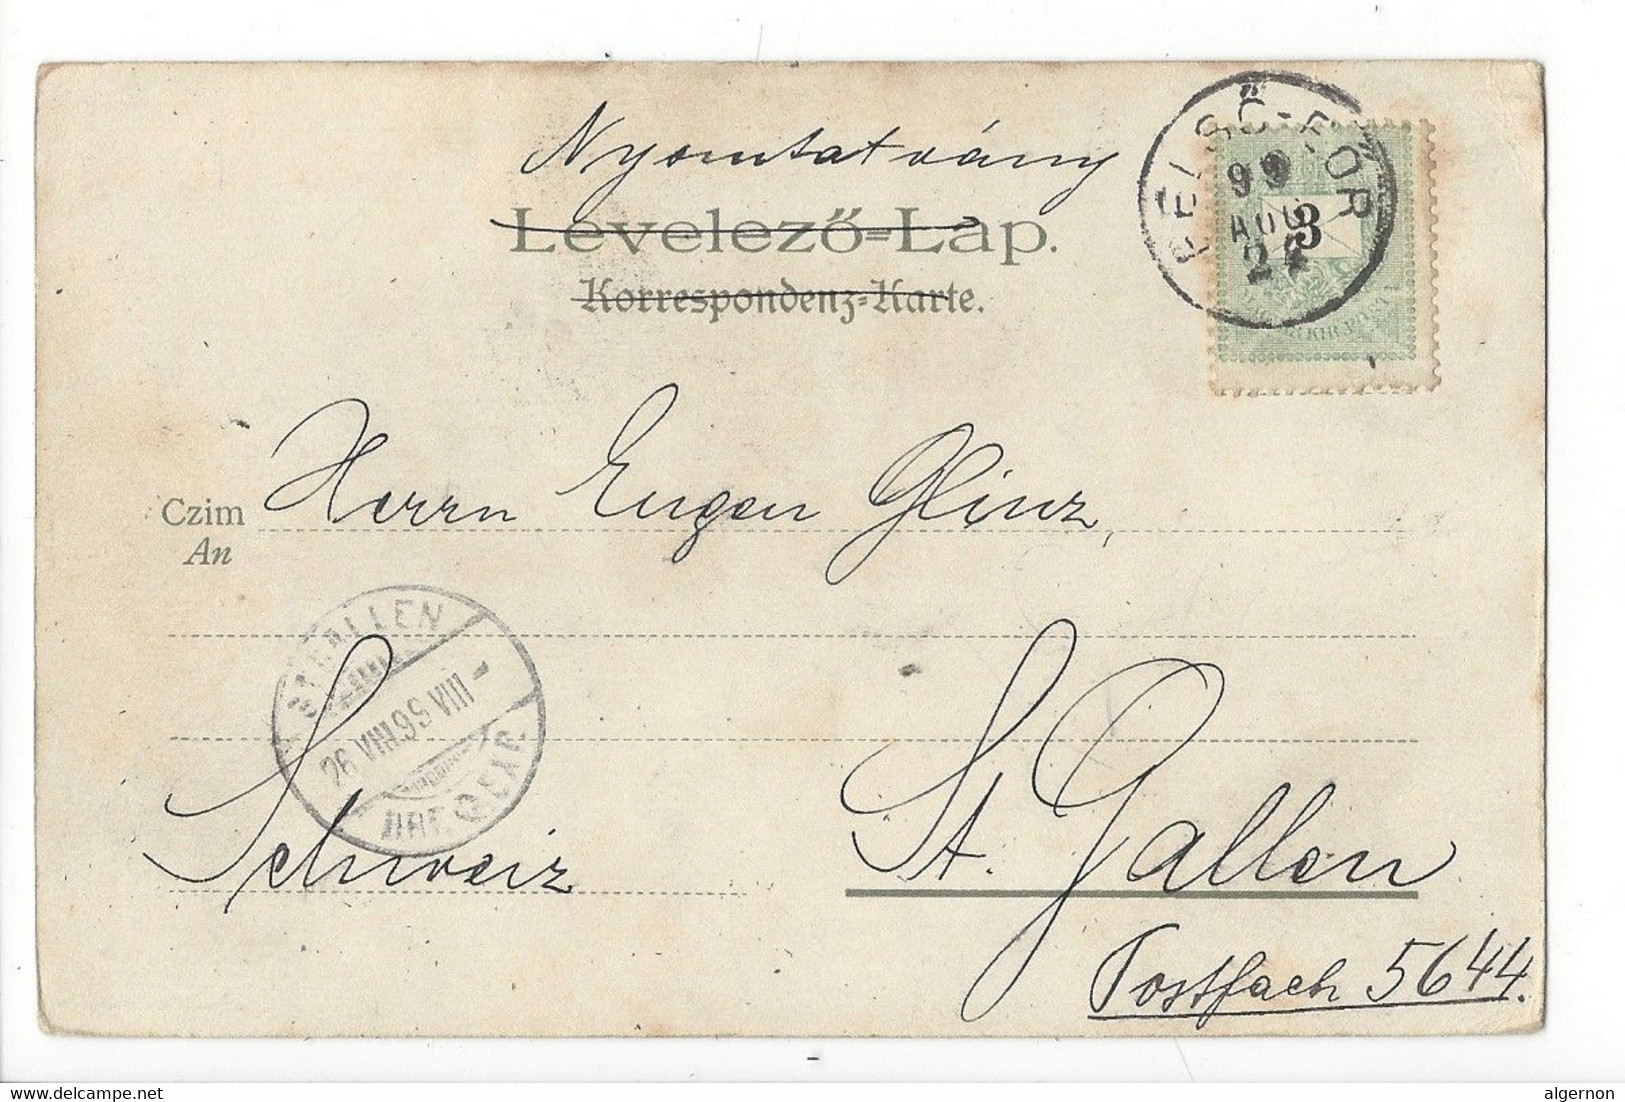 Nyomtatvány
Levelező-Lap.
Korrespondenz-Karte.
FELSŐ-FÓR
99
AUG
24
3
KIR. POSTA
Czim Herrn Eugen Glinz,
An
ST. GALLEN
26 VIII.95 VIII -
Schweiz
St. Gallen
Postfach 5644.
delcampe.net
algernon